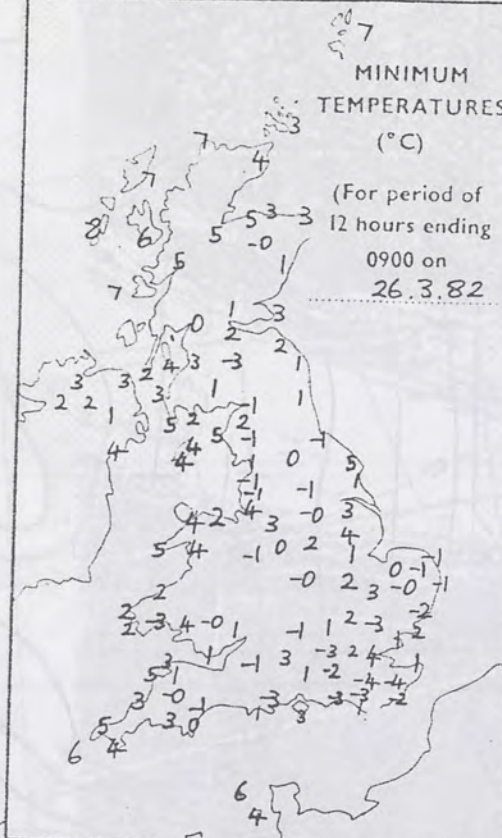 7
MINIMUM
TEMPERATURES
(°C)
(For period of
12 hours ending
0900 on
26.3.82
3
7 4
7
8 6 5 5 3 3
-0
5 1
7
0 1 3
2 2
3 3 2 4 3 -3 1
2 2 1 3 1 1
5 2 -1
4 5 2
4 -1 -1
4 -1 0 5
-1 -1 1
4 2 4 3 -0 3
5 4 -1 0 2 4
1 -1
-0 0 -1
2 2 3 -0 -1
2 -2
2 -3 4 -0 1 -1 1 2 -3 -2
3 1 -1 3 -3 2 4 1
5 1 1 -2 -4 -4
3 -0 -1 -3 -3 -3 -2
5 3 0 1 3 1
6 4
6
4